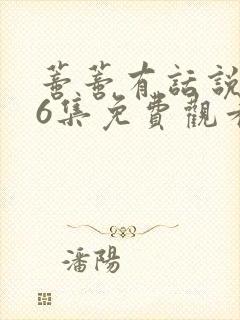 蓄蓄有話說
6集免費觀看
潘陽